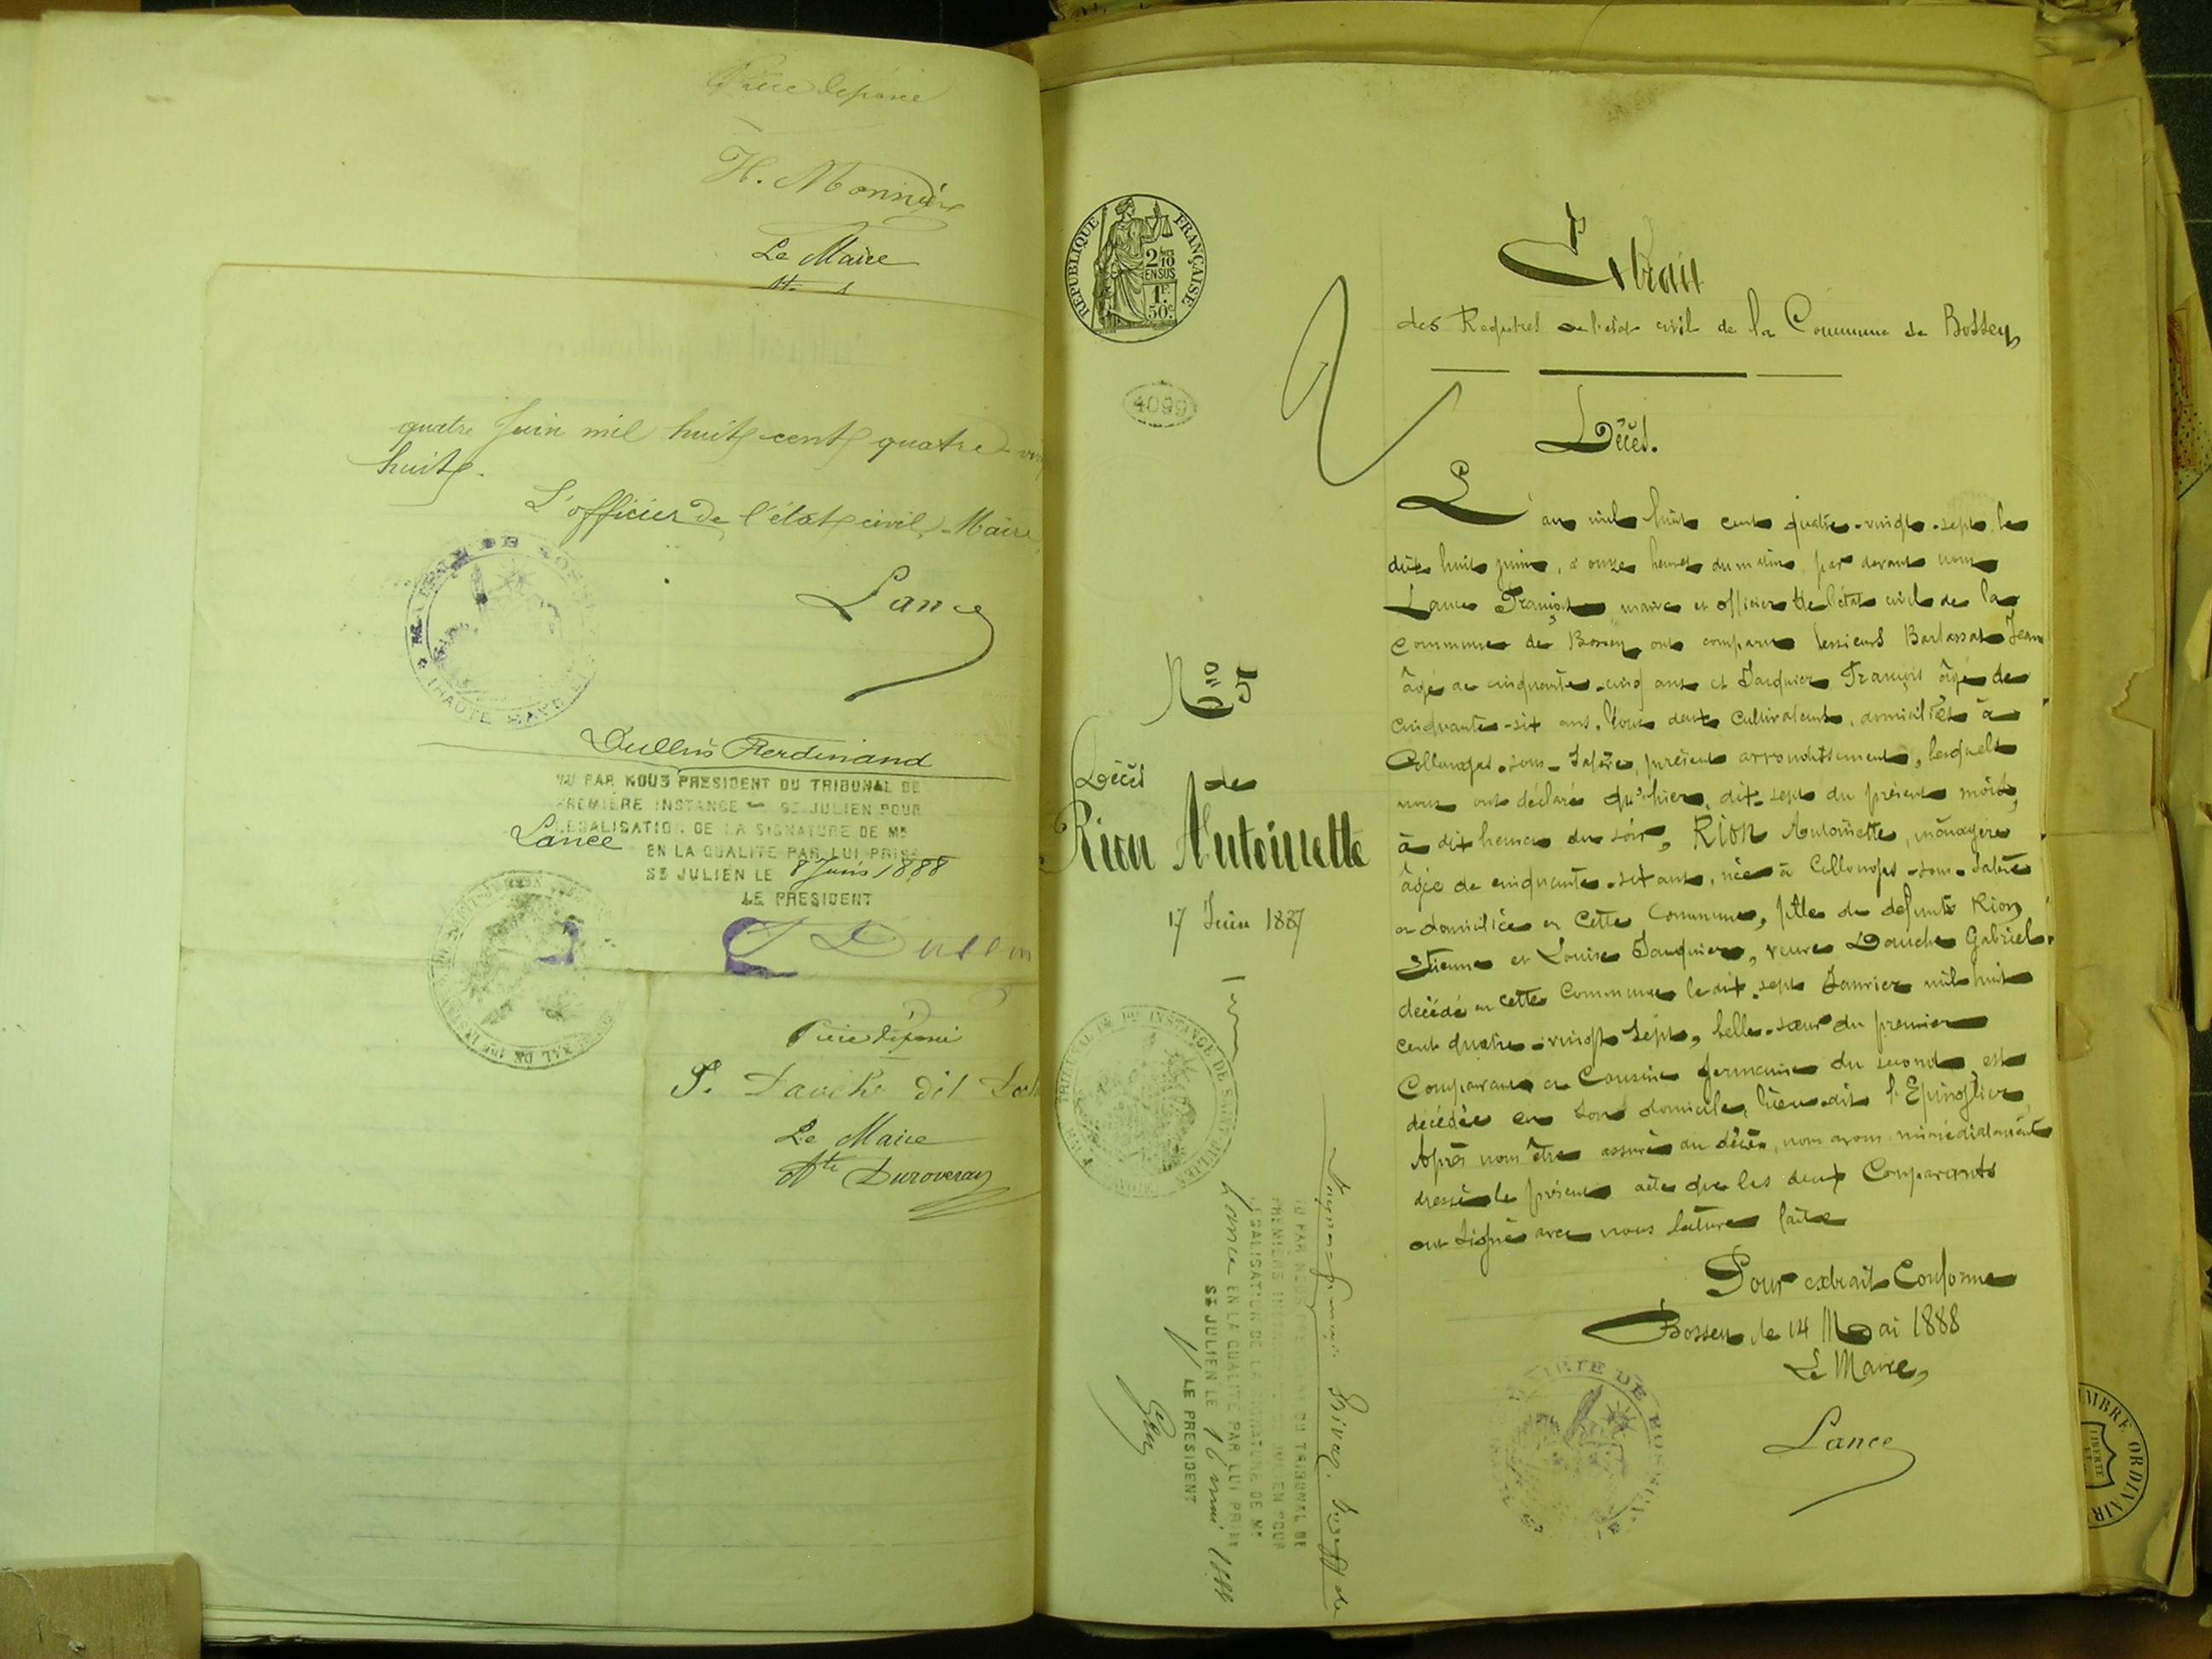 Pièce déposée
H. Monnière
Le Maire
quatre Juin mil huit cent quatre-
huit.
L'officier de l'état civil, Maire,
Lance
Dullin Ferdinand
VU PAR NOUS PRESIDENT DU TRIBUNAL DE
PREMIÈRE INSTANCE ST JULIEN POUR
LEGALISATION DE LA SIGNATURE DE MR
Lance
EN LA QUALITE PAR LUI PRISE
ST JULIEN LE 8 Juin 1888
LE PRESIDENT
Dullin
Pièce déposée
Dauche dit
Le Maire
Duroveray
REPUBLIQUE FRANÇAISE
2/10
EN SUS
1F.
50c.
4099
No 5
Décès de
Rion Antoinette
17 Juin 1887
TRIBUNAL DE 1re INSTANCE DE SAINT JULIEN
VU PAR NOUS PRESIDENT DU TRIBUNAL DE
PREMIERE INSTANCE ST JULIEN POUR
LEGALISATION DE LA SIGNATURE DE MR
Lance EN LA QUALITE PAR LUI PRISE
ST JULIEN LE 16 mai 1888
LE PRESIDENT
Extrait
des Registres de l'état civil de la Commune de Bossey
Décès.
L'an mil huit cent quatre-vingt-sept, le
dix huit juin, à onze heures du matin, par devant nous
Lance François, maire et officier de l'état civil de la
Commune de Bossey ont comparu les sieurs Barlassat Jean
âgé de cinquante-cinq ans et Jacquier François âgé de
cinquante-six ans. Tous deux cultivateurs, domiciliés à
Collonges-sous-Salève, présent arrondissement, lesquels
nous ont déclaré qu'hier, dix-sept du présent mois,
à dix heures du soir, RION Antoinette, ménagère
âgée de cinquante-six ans, née à Collonges-sous-Salève
et domiciliée en cette Commune, fille de défunts Rion
Etienne et Louise Jacquier, veuve Dauche Gabriel
décédé en cette Commune le dix-sept Janvier mil huit
cent quatre-vingt sept, belle-sœur du premier
Comparant et Cousine germaine du second, est
décédée en son domicile, lieu-dit l'Epinglier
Après nous être assuré du décès, nous avons immédiatement
dressé le présent acte que les deux Comparants
ont signé avec nous lecture faite
Pour extrait Conforme
Bossey, le 14 Mai 1888
Le Maire,
MAIRIE DE BOSSEY
Lance